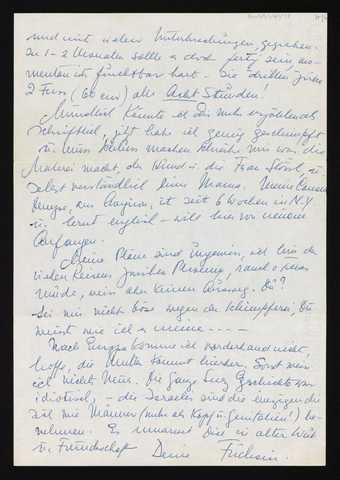 und mit vielen Unterbrechungen, gegraben.
In 1-2 Monaten sollte es doch fertig sein
momentan ich furchtbar hart. Sie drillen jeden
2 Fuss (60 cm) alle Acht Stunden!
Mündlich könnte ich Dir mehr erzählen als
schriftlich, jetzt habe ich genug geschimpft
u. muss Schluss machen. Schreibe mir was die
Malerei macht, der Hund u. die Frau
selbstverständlich Deine Mama.
aus, ist seit 6 Wochen in N.Y.
u. lernt english - will hier von neuem
Anfangen.
Meine Pläne sind Ungewiss, ich bin der
vielen Reisen zwischen
müde, weiss aber keinen Ausweg. Du?
Sei mir nicht böse wegen der Schimpferei, Du
weisst wie ich es meine ----
Nach Europa komme ich vorderhand nicht,
hoffe, die Mutter kommt hierher. Sonst weiss
ich nicht Neues. Die ganze Suez Geschichte war
idiotisch, - die Israelis sind die einzigen die
sich wie Männer (mehr als Kopf u. Genitalien!) be-
nehmen. Es umarmt Dich in alter Lieb
u. Freundschaft Deine Füchsin.